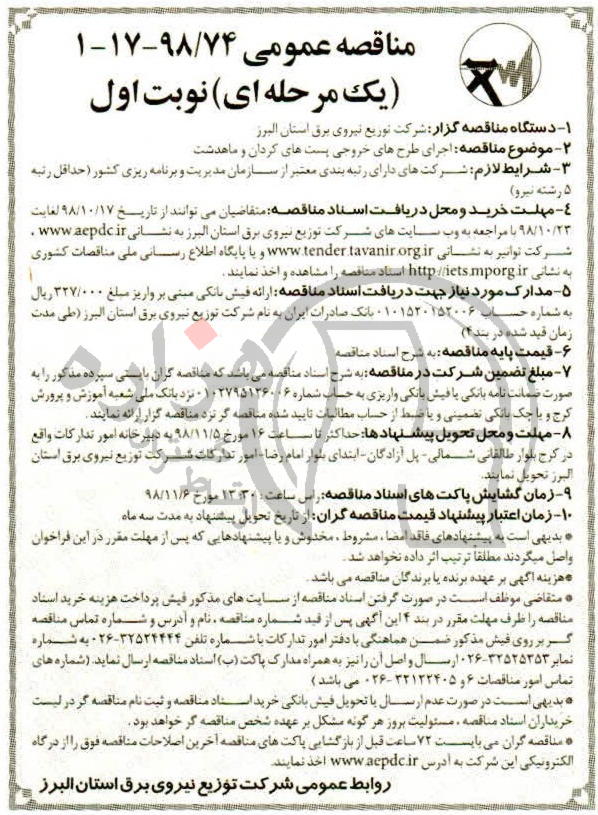 مناقصه عمومی ۹۸/۷۴-۱۷-۱
(یک مرحله ای) نوبت اول
۱-دستگاه مناقصه گزار: شرکت توزیع نیروی برق استان البرز
۲-موضوع مناقصه: اجرای طرح های خروجی پست های کردان و ماهدشت
۳-شرایط لازم: شرکت های دارای رتبه بندی معتبر از سازمان مدیریت و برنامه ریزی کشور (حداقل رتبه
۵ رشته نیرو)
۴-مهلت خرید و محل دریافت اسناد مناقصه: متقاضیان می توانند از تاریخ ۹۸/۱۰/۱۷ لغایت
۹۸/۱۰/۲۳ با مراجعه به وب سایت های شرکت توزیع نیروی برق استان البرز به نشانی www.aepdc.ir ،
شرکت توانیر به نشانی www.tender.tavanir.org.ir و یا پایگاه اطلاع رسانی ملی مناقصات کشوری
به نشانی http://iets.mporg.ir اسناد مناقصه را مشاهده و اخذ نمایند.
۵-مدارک مورد نیاز جهت دریافت اسناد مناقصه: ارائه فیش بانکی مبنی بر واریز مبلغ ۳۲۷/۰۰۰ ریال
به شماره حساب ۰۱۰۱۵۲۰۱۵۲۰۰۶ بانک صادرات ایران به نام شرکت توزیع نیروی برق استان البرز (طی مدت
زمان قید شده در بند ۴)
۶-قیمت پایه مناقصه: به شرح اسناد مناقصه
۷-مبلغ تضمین شرکت در مناقصه: به شرح اسناد مناقصه می باشد که مناقصه گران بایستی سپرده مذکور را به
صورت ضمانت نامه بانکی یا فیش بانکی واریزی به حساب شماره ۰۱۰۲۷۹۵۱۲۶۰۰۶ نزد بانک ملی شعبه آموزش و پرورش
کرج و یا چک بانکی تضمینی و یا ضبط از حساب مطالبات تایید شده مناقصه گر نزد مناقصه گزار ارائه نمایند.
۸-مهلت و محل تحویل پیشنهادها: حداکثر تا ساعت ۱۶ مورخ ۹۸/۱۱/۵ به دبیرخانه امور تدارکات واقع
در کرج بلوار طالقانی شمالی- پل آزادگان-ابتدای بلوار امام رضا- امور تدارکات شرکت توزیع نیروی برق استان
البرز تحویل نمایند.
۹-زمان گشایش پاکت های اسناد مناقصه: راس ساعت : ۱۳:۳۰ مورخ ۹۸/۱۱/۶
۱۰-زمان اعتبار پیشنهاد قیمت مناقصه گران: از تاریخ تحویل پیشنهاد به مدت سه ماه
*بدیهی است به پیشنهادهای فاقد امضا ، مشروط ، مخدوش و یا پیشنهادهایی که پس از مهلت مقرر در این فراخوان
واصل میگردند مطلقا ترتیب اثر داده نخواهد شد .
*هزینه آگهی بر عهده برنده یا برندگان مناقصه می باشد .
* متقاضی موظف است در صورت گرفتن اسناد مناقصه از سایت های مذکور فیش پرداخت هزینه خرید اسناد
مناقصه را ظرف مهلت مقرر در بند ۴ این آگهی پس از قید شماره مناقصه ، نام و آدرس و شماره تماس مناقصه
گر بر روی فیش مذکور ضمن هماهنگی با دفتر امور تدارکات با شماره تلفن ۳۲۵۲۴۴۴۴-۰۲۶ به شماره
نمابر ۳۲۵۲۵۳۵۳-۰۲۶ ارسال و اصل آن را نیز به همراه مدارک پاکت (ب) اسناد مناقصه ارسال نماید. (شماره های
تماس امور مناقصات ۶ و ۳۲۱۲۲۴۰۵-۰۲۶ می باشد )
* بدیهی است در صورت عدم ارسال یا تحویل فیش بانکی خرید اسناد مناقصه و ثبت نام مناقصه گر در لیست
خریداران اسناد مناقصه ، مسئولیت بروز هر گونه مشکل بر عهده شخص مناقصه گر خواهد بود .
* مناقصه گران می بایست ۷۲ ساعت قبل از بازگشایی پاکت های مناقصه آخرین اصلاحات مناقصه فوق را از درگاه
الکترونیکی این شرکت به آدرس www.aepdc.ir اخذ نمایند.
روابط عمومی شرکت توزیع نیروی برق استان البرز